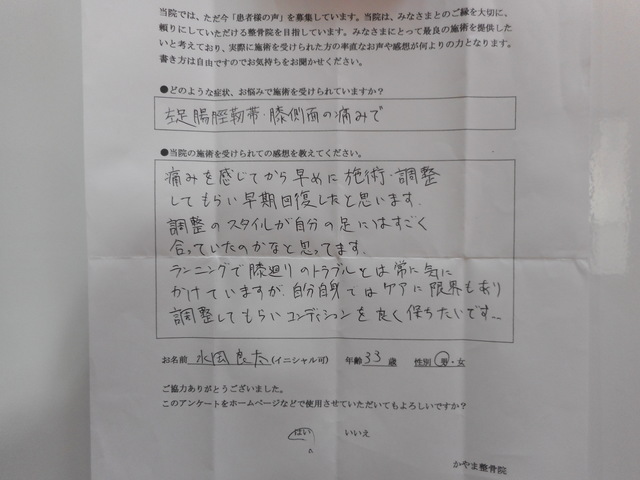 当院では、ただ今「患者様の声」を募集しています。当院は、みなさまとのご縁を大切に、
頼りにしていただける整骨院を目指しています。みなさまにとって最良の施術を提供した
いと考えており、実際に施術を受けられた方の率直なお声や感想が何よりの力となります。
書き方は自由ですのでお気持ちをお聞かせください。
●どのような症状、お悩みで施術を受けられていますか?
左足腸脛靭帯・膝側面の痛みで
●当院の施術を受けられての感想を教えてください。
痛みを感じてから早めに施術・調整
してもらい早期回復したと思います。
調整のスタイルが自分の足にはすごく
合っていたのかなと思ってます。
ランニングで膝廻りのトラブルとは常に気に
かけていますが、自分自身ではケアに限界もあり
調整してもらいコンディションを良く保ちたいです…
お名前 永岡良太 (イニシャル可) 年齢 33 歳 性別 男・女
ご協力ありがとうございました。
このアンケートをホームページなどで使用させていただいてもよろしいですか?
はい いいえ
かやま整骨院